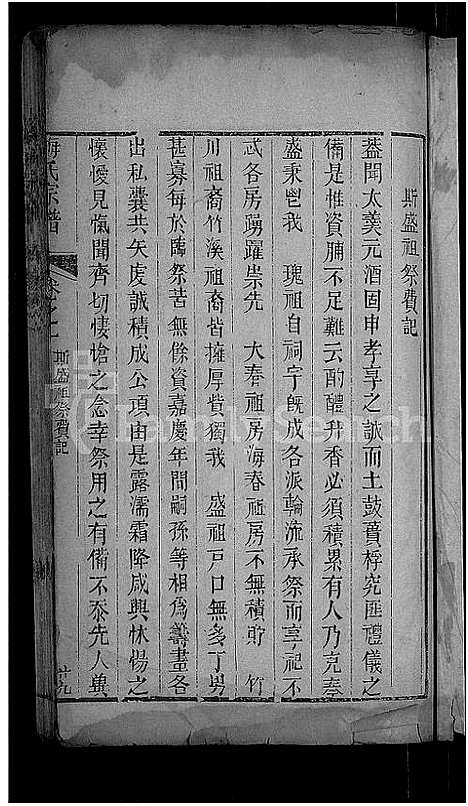 斯盛祖祭費記
葢聞太羹元酒固申孝享之誠而土鼓蕢桴究匪禮儀之
備是惟資脯不足難云酌醴升香必須積累有人乃克奏
盛秉鬯我 瑰祖自祠宇既成各派輪流承祭而享祀不
忒各房踴躍崇先 大奉祖房海春祖房不無積貯 竹
川祖裔竹溪祖裔皆擁厚貲獨我 盛祖戸口無多丁男
甚寡每於薦祭苦無餘資嘉慶年間嗣孫等相為籌畫各
出私囊共矢虔誠積成公項由是露濡霜降咸興怵惕之
懷僾見愾聞齊切悽愴之念幸祭用之有備不忝先人冀
氏宗譜
卷之
斯盛祖祭費記
廿九
FamilySearch